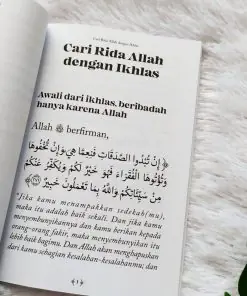 Cari Rida Allah dengan Ikhlas
Cari Rida Allah
dengan Ikhlas
Awali dari ikhlas, beribadah
hanya karena Allah
Allah ﷻ berfirman,
﴿إِنْ تُبْدُوا الصَّدَقَاتِ فَنِعِمَّا هِيَ وَإِنْ تُخْفُوهَا
وَتُؤْتُوهَا الْفُقَرَاءَ فَهُوَ خَيْرٌ لَكُمْ وَيُكَفِّرُ عَنْكُمْ
مِنْ سَيِّئَاتِكُمْ وَاللَّهُ بِمَا تَعْمَلُونَ خَبِيرٌ ﴿٢٧١﴾
"Jika kamu menampakkan sedekah(mu),
maka itu adalah baik sekali. Dan jika kamu
menyembunyikannya dan kamu berikan kepada
orang-orang fakir, maka menyembunyikan itu
lebih baik bagimu. Dan Allah akan menghapuskan
dari kamu sebagian kesalahan-kesalahanmu; dan